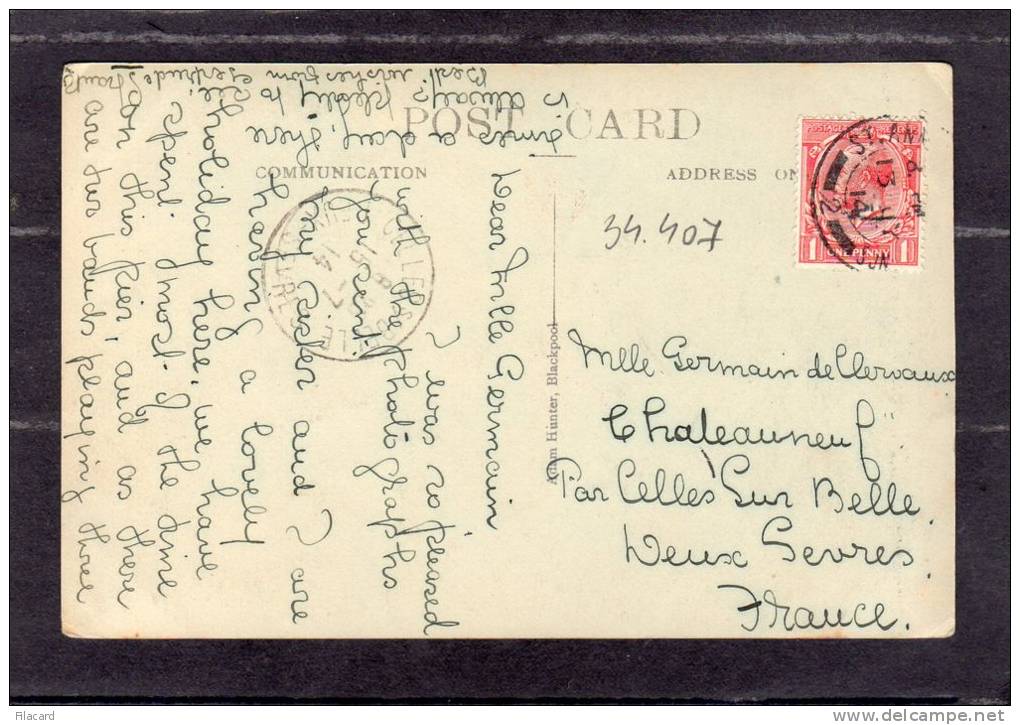 POST CARD
COMMUNICATION
ADDRESS ON
34.407
ONE PENNY
Adam Hunter, Blackpool
Mlle Germain de Clervaux
Chateauneuf
Par Celles Sur Belle
Deux Sevres
France.
Dear Mlle Germain
I was so pleased
with the photographs
you sent.
My sister and I are
having a lovely
holiday here, we have
spent most of the time
on this Pier, and as there
are two bands playing three
times a day, there
is always plenty to
see.
Best wishes from
Gertrude
Filacard
delcampe.net